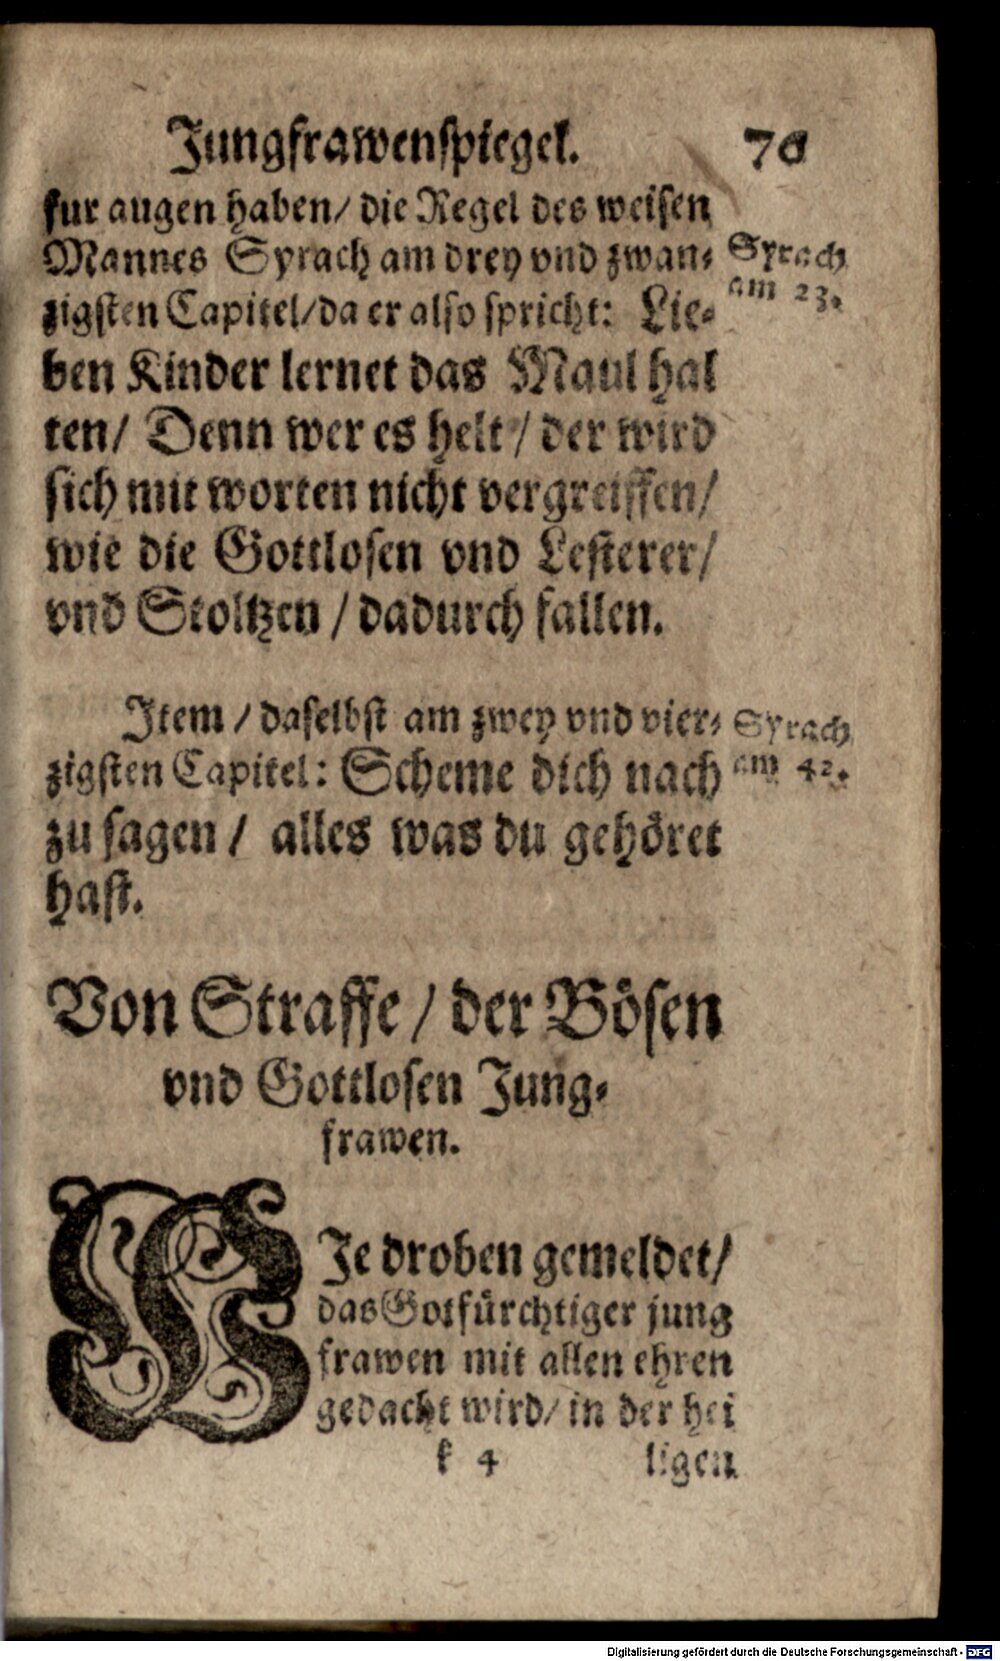 Jungfrawenspiegel. 76
fur augen haben/ die Regel des weisen
Mannes Syrach am drey vnd zwan-
Syrach
zigsten Capitel/ da er also spricht: Lie-
am 23.
ben Kinder lernet das Maul hal
ten/ Denn wer es helt/ der wird
sich mit worten nicht vergreiffen/
wie die Gottlosen vnd Lesterer/
vnd Stoltzen/ dadurch fallen.
Item/ daselbst am zwey vnd vier-
Syrach
zigsten Capitel: Scheme dich nach
am 42.
zu sagen/ alles was du gehöret
hast.
Von Straffe/ der Bösen
vnd Gottlosen Jung-
frawen.
WJe droben gemeldet/
das Gotfürchtiger jung
frawen mit allen ehren
gedacht wird/ in der hei
k 4 ligen
Digitalisierung gefördert durch die Deutsche Forschungsgemeinschaft - DFG